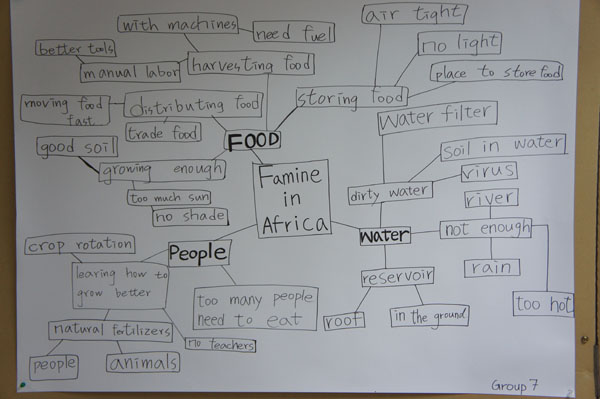 air tight
with machines
need fuel
no light
better tools
manual labor
harvesting food
place to store food
moving food
fast
distributing food
storing food
trade food
Water filter
FOOD
good soil
growing enough
soil in water
too much sun
no shade
Famine
in
Africa
dirty water
virus
river
crop rotation
People
Water
not enough
learing how to
grow better
reservoir
rain
too many people
need to eat
too hot
roof
in the ground
natural fertilizers
no teachers
people
animals
Group 7